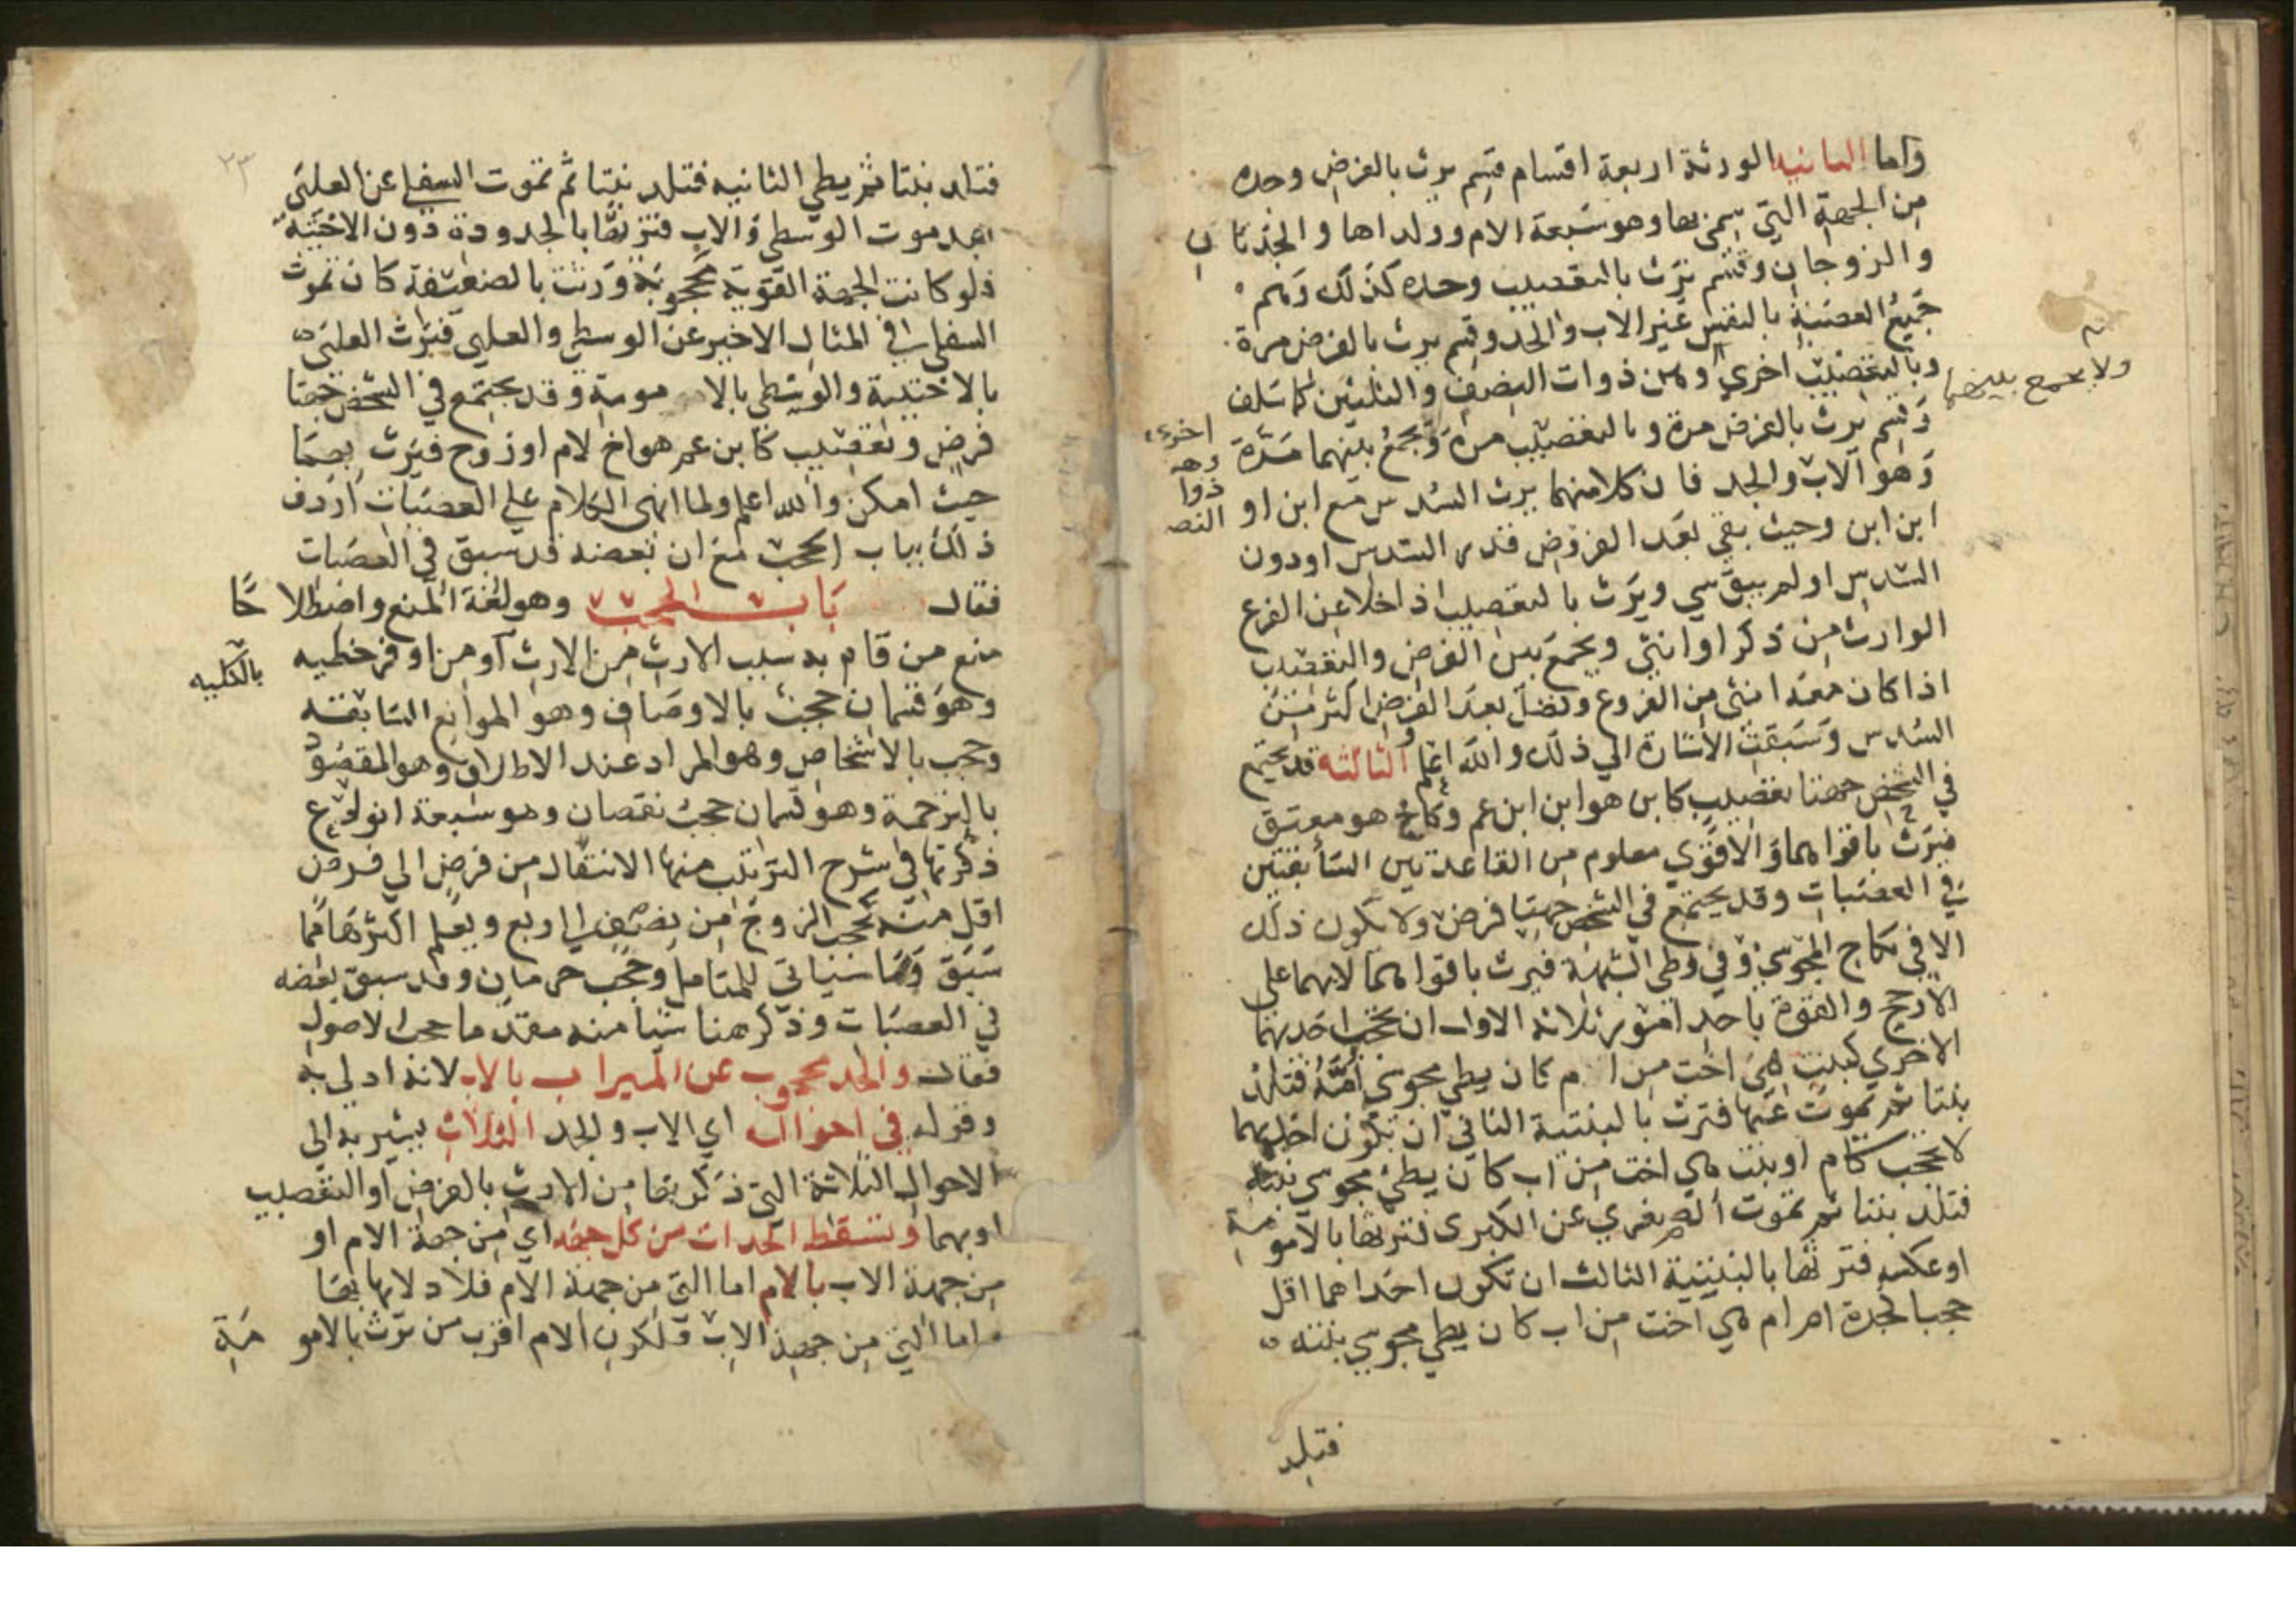 واما الثانيه الورثة اربعة اقسام قسم يرث بالفرض وحده
من الجهة التي سمي بها وهو سبعة الام وولداها والجدتان
والزوجان وقسم يرث بالتعصيب وحده كذلك وهم
جميع العصبة بالنفس غير الاب والجد وقسم يرث بالفرض مرة
وبالتعصيب اخري ولا يجمع بينهما وهن ذوات النصف والثلثين كما سلف
وقسم يرث بالفرض مرة وبالتعصيب مرة ويجمع بينهما مرة اخرى
وهو الاب والجد فان كلا منهما يرث السدس مع ابن او
ابن ابن وحيث بقي بعد الفروض قدر السدس او دون
السدس او لم يبق شي ويرث بالتعصيب اذا خلا عن الفرع
الوارث من ذكر او انثي ويجمع بين الفرض والتعصيب
اذا كان معه انثى من الفروع وفضل بعد الفرض اكثر من
السدس وسبقت الاشارة الي ذلك والله اعلم الثالثه قد يجتمع
في الشخص جهتا تعصيب كابن هو ابن ابن عم وكاخ هو معتق
فيرث باقواهما والاقوي معلوم من القاعدتين السابقتين
في العصبات وقد يجتمع في الشخص جهتا فرض ولا يكون ذلك
الا في نكاح المجوسي وفي وطي الشبهة فيرث باقواهما لا بهما علي
الارجح والقوة باحد امور ثلاثة الاول ان تحجب احديهما
الاخري كبنت هي اخت من ام كان يطي مجوسي امه فتلد
بنتا ثم تموت عنها فترث بالبنتية الثاني ان تكون احديهما
لا تحجب كام او بنت هي اخت من اب كان يطئ مجوسي بنته
فتلد بنتا ثم تموت الصغري عن الكبرى فترثها بالامومة
او عكسه فترثها بالبنتية الثالث ان تكون احداهما اقل
حجبا لجدة ام ام هي اخت من اب كان يطي مجوسي بنته
فتلد
٢٣
فتلد بنتا ثم يطي الثانيه فتلد بنتا ثم تموت السفلي عن العليي
بعد موت الوسطي والاب فترثها بالجدودة دون الاختية
فلو كانت الجهة القوية محجوبة ورثت بالضعيفة كان تموت
السفلي في المثال الاخير عن الوسطي والعليي فترث العليي
بالاختية والوسطي بالامومة وقد يجتمع في الشخص جهتا
فرض وتعصيب كابن عم هو اخ لام او زوج فيرث بهما
حيث امكن والله اعلم ولما انهى الكلام علي العصبات اردف
ذلك بباب الحجب مع ان بعضه قد سبق في العصبات
فقال باب الحجب وهو لغة المنع واصطلاحا
منع من قام به سبب الارث من الارث بالكليه او من اوفر حظيه
وهو قسمان حجب بالاوصاف وهو الموانع السابقه
وحجب بالاشخاص وهو المراد عند الاطلاق وهو المقصود
بالترجمة وهو قسمان حجب نقصان وهو سبعة انواع
ذكرتها في شرح الترتيب منها الانتقال من فرض الي فرض
اقل منه كحجب الزوج من نصف الي ربع ويعلم اكثرها مما
سبق وما سياتي للمتامل وحجب حرمان وقد سبق بعضه
في العصبات وذكر هنا شيا منه مقدما حجب الاصول
فقال والجد محجوب عن الميراث بالاب لانه ادلي به
وقوله في احواله اي الاب والجد الثلاث يشير به الى
الاحوال الثلاثة التي ذكرتها من الارث بالفرض او التعصيب
او بهما وتسقط الجدات من كل جهه اي من جهة الام او
من جهة الاب بالام اما التي من جهة الام فلادلائها بها
واما التي من جهة الاب فلكون الام اقرب من يرث بالامومة